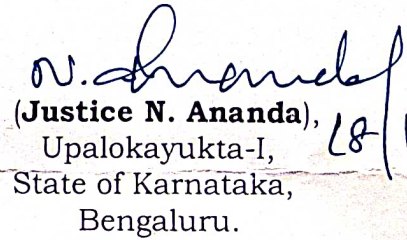 N. Ananda
(Justice N. Ananda),
18/
Upalokayukta-I,
State of Karnataka,
Bengaluru.